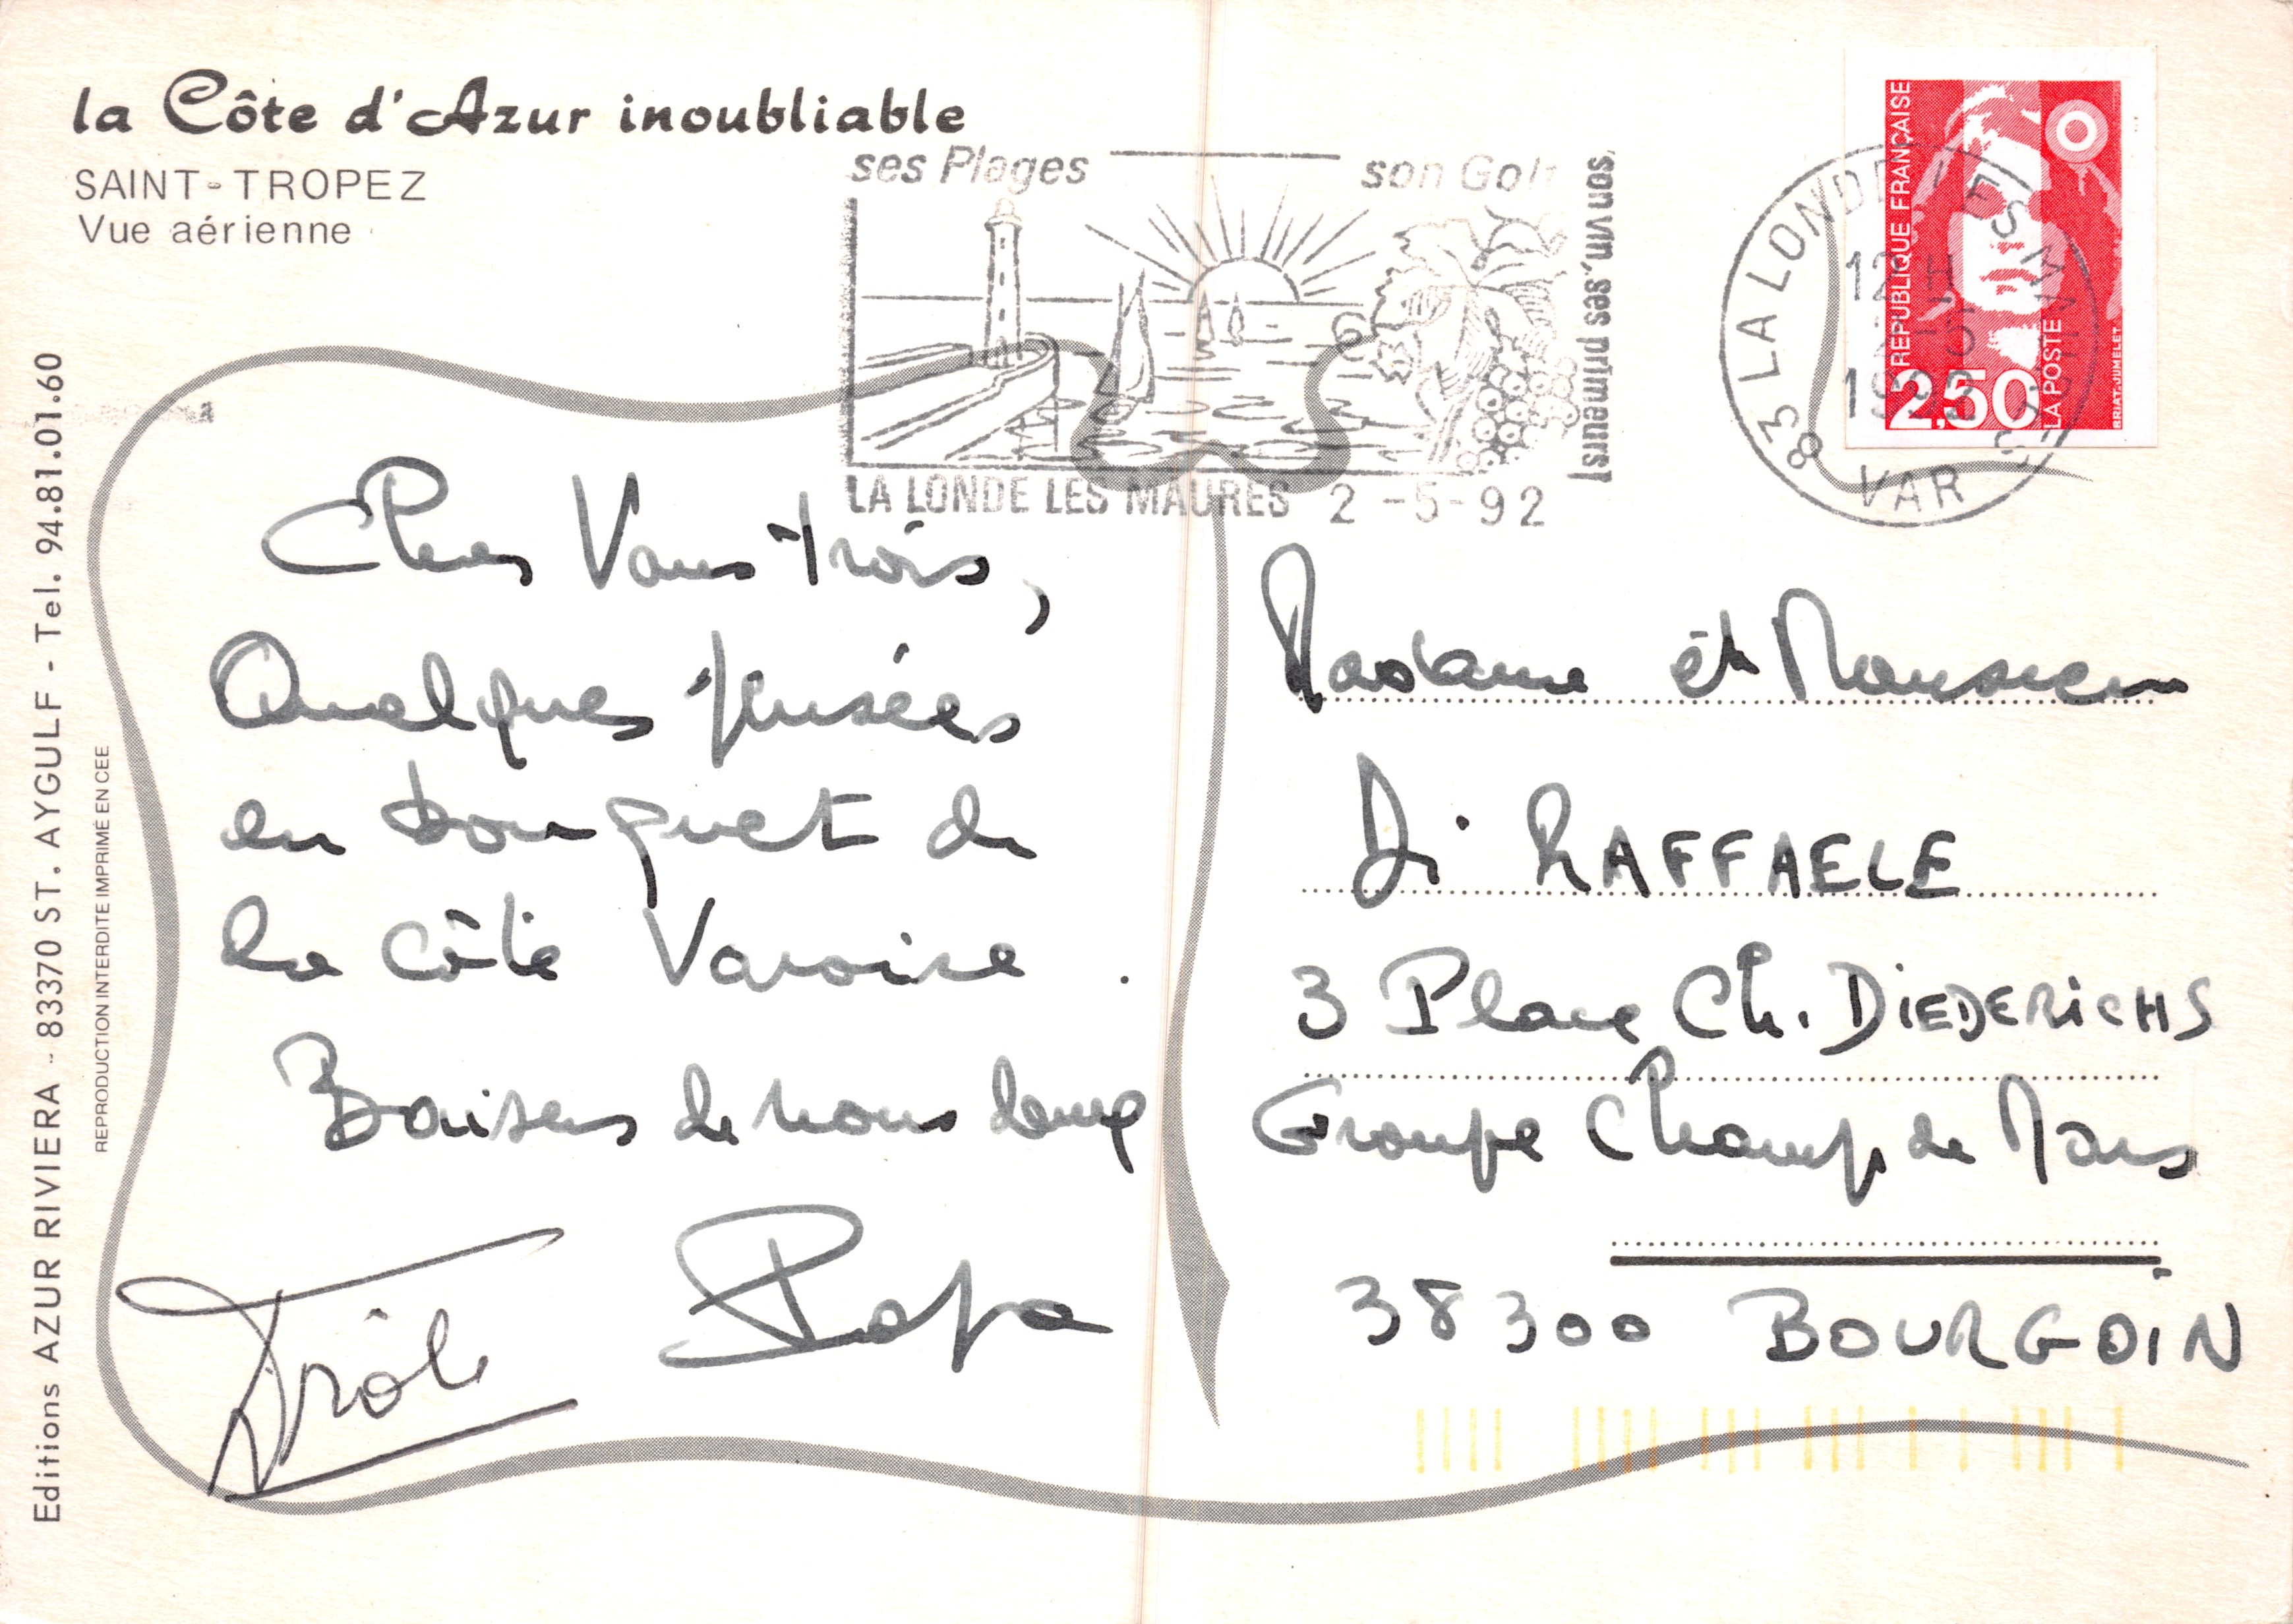 la Côte d'Azur inoubliable
SAINT-TROPEZ
Vue aérienne
ses Plages son Golf
son vin, ses primeurs!
LA LONDE LES MAURES 2 -5-92
83 LA LONDE LES MAURES
VAR
REPUBLIQUE FRANÇAISE
2,50
LA POSTE
BRIAT-JUMELET
Editions AZUR RIVIERA - 83370 ST. AYGULF - Tel. 94.81.01.60
REPRODUCTION INTERDITE IMPRIMÉ EN CEE
Chers Vous trois,
Quelques pensées
en bouquet de
la côte Varoise.
Baisers de nous deux
Papa
Madame et Monsieur
Di RAFFAELE
3 Place Ch. DIEDERICHS
Groupe Champ de Mars
38300 BOURGOIN